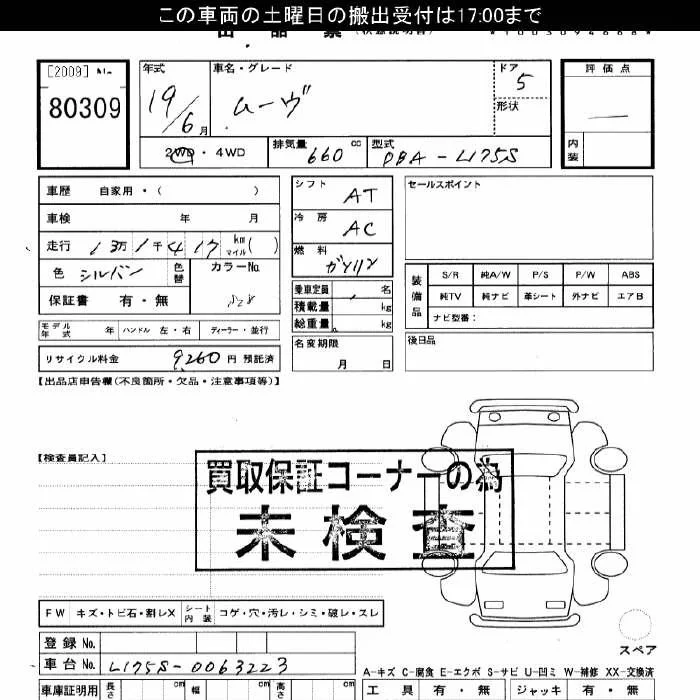 この車両の土曜日の搬出受付は17:00まで
[2009] No.
80309
年式
19/6月
車名・グレード
ムーヴ
ドア
5
形状
評価点
内装
2WD・4WD
排気量 660 cc
型式 DBA-L175S
車歴 自家用・( )
車検 年 月
走行 13万1千417 km マイル( )
色 シルバン
色替
カラーNo.
保証書 有・無
モデル年式 年 ハンドル 左・右 ディーラー・並行
リサイクル料金 9260 円 預託済
シフト AT
冷房 AC
燃料 ガソリン
乗車定員 名
積載量 kg
総重量 kg
名変期限
月 日
セールスポイント
装備品
S/R 純A/W P/S P/W ABS
純TV 純ナビ 革シート 外ナビ エアB
ナビ型番:
後日品
【出品店申告欄(不良箇所・欠品・注意事項等)】
【検査員記入】
買取保証コーナーの為
未検査
FW キズ・トビ石・割レX シート内装 コゲ・穴・汚レ・シミ・破レ・スレ
スペア
登録 No.
車台 No. L175S-0063223
A-キズ C-腐食 E-エクボ S-サビ U-凹ミ W-補修 XX-交換済
車庫証明用 長さ cm 幅 cm 高さ cm
工具 有・無 ジャッキ 有・無